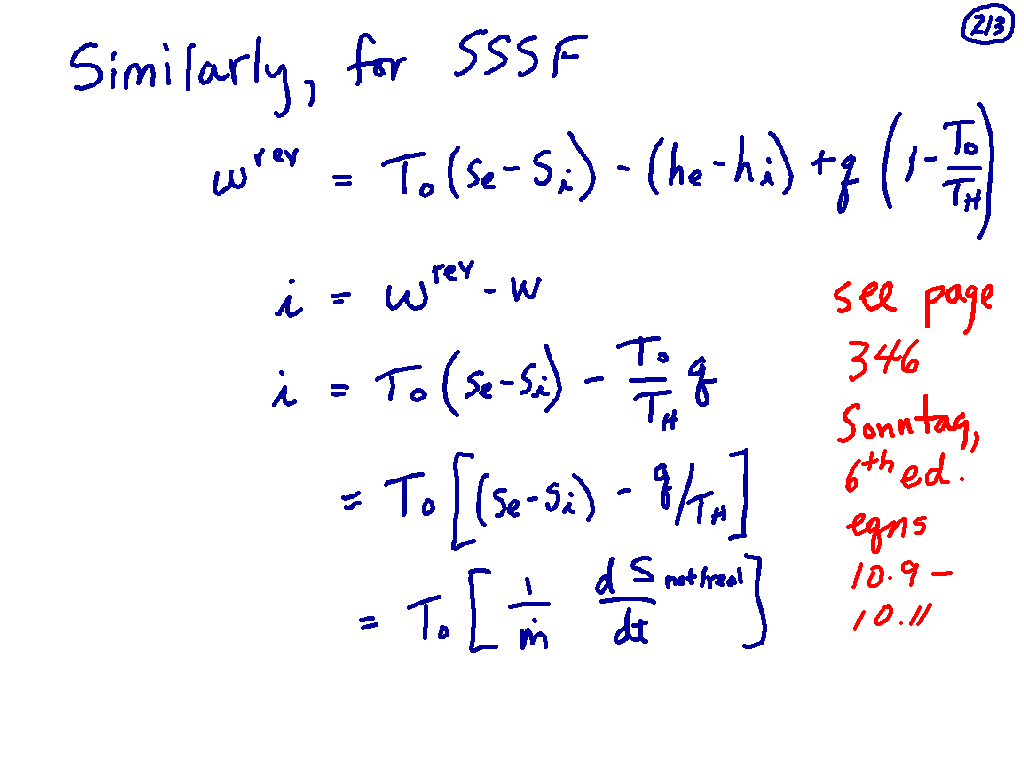 2/3
Similarly, for SSSF
w^rev = T₀(sₑ-sᵢ) - (hₑ-hᵢ) + q (1 - T₀/T_H)
i = w^rev - w
i = T₀(sₑ-sᵢ) - T₀/T_H q
= T₀[(sₑ-sᵢ) - q/T_H]
= T₀[1/ṁ dS net/real/dt]
see page
346
Sonntag,
6th ed.
eqns
10.9 -
10.11